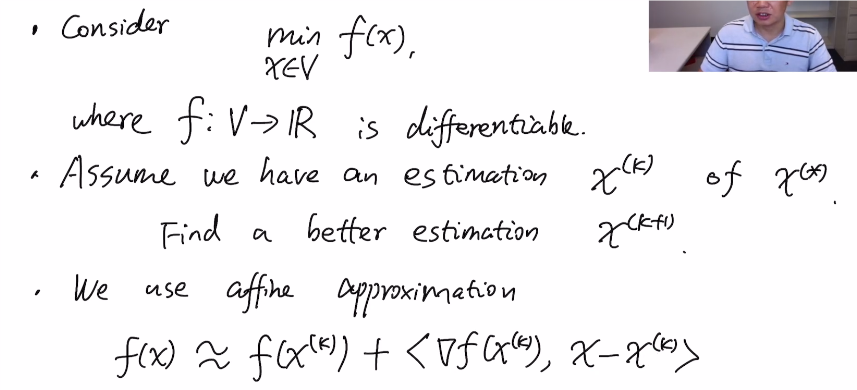 • Consider min f(x),
x∈V
where f: V→ℝ is differentiable.
• Assume we have an estimation x^(k) of x^(*).
Find a better estimation x^(k+1).
• We use affine approximation
f(x) ≈ f(x^(k)) + <∇f(x^(k)), x−x^(k)>